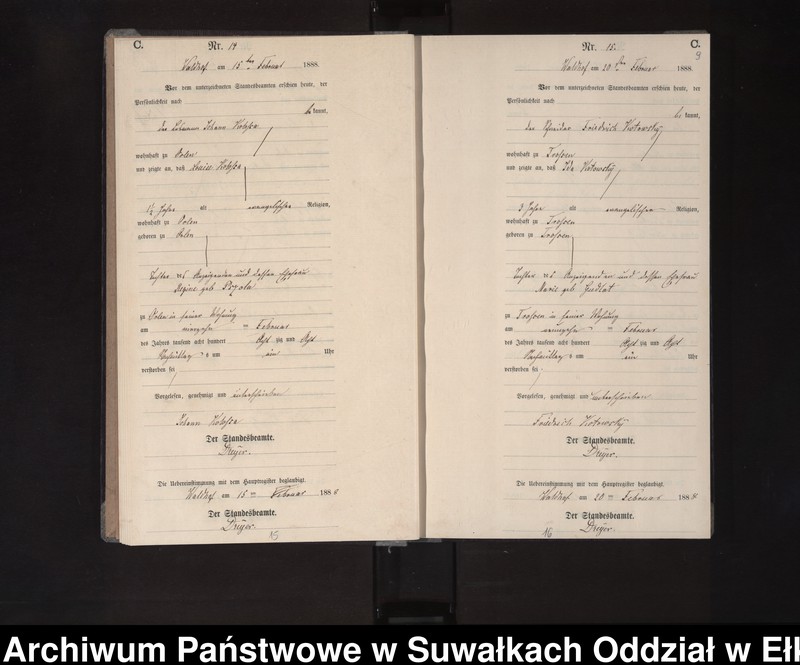 C.
Nr. 14
Waldhof am 15ten Februar 1888.
Vor dem unterzeichneten Standesbeamten erschien heute, der
Persönlichkeit nach
bekannt,
der Johann
wohnhaft zu
und zeigte an, daß
1½ Jahr alt evangelischer Religion,
wohnhaft zu
geboren zu
Tochter des Anzeigenden und dessen Ehefrau
Regine geb.
zu in seiner Wohnung
am ten Februar
des Jahres tausend acht hundert Acht zig und Acht
Vormittags um ein Uhr
verstorben sei
Vorgelesen, genehmigt und unterschrieben
Johann
Der Standesbeamte.
Dreyer.
Die Uebereinstimmung mit dem Hauptregister beglaubigt.
Waldhof am 15ten Februar 1888
Der Standesbeamte.
Dreyer.
15
Nr. 15.
C.
9
Waldhof am 20ten Februar 1888.
Vor dem unterzeichneten Standesbeamten erschien heute, der
Persönlichkeit nach
bekannt,
der Friedrich Kotowsky
wohnhaft zu Trossen
und zeigte an, daß Ida Kotowsky
Jahr alt evangelischer Religion,
wohnhaft zu Trossen
geboren zu Trossen
Tochter des Anzeigenden und dessen Ehefrau
Marie geb.
zu Trossen in seiner Wohnung
am neunzehn ten Februar
des Jahres tausend acht hundert Acht zig und Acht
Nachmittags um ein Uhr
verstorben sei
Vorgelesen, genehmigt und unterschrieben
Friedrich Kotowsky
Der Standesbeamte.
Dreyer.
Die Uebereinstimmung mit dem Hauptregister beglaubigt.
Waldhof am 20ten Februar 1888
Der Standesbeamte.
Dreyer.
16
Archiwum Państwowe w Suwałkach Oddział w Ełk